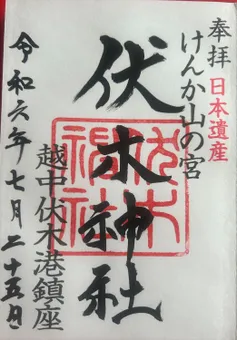 奉拝
日本遺産
けんか山の宮
伏木神社
伏木神社
越中伏木港鎮座
令和六年七月二十五日